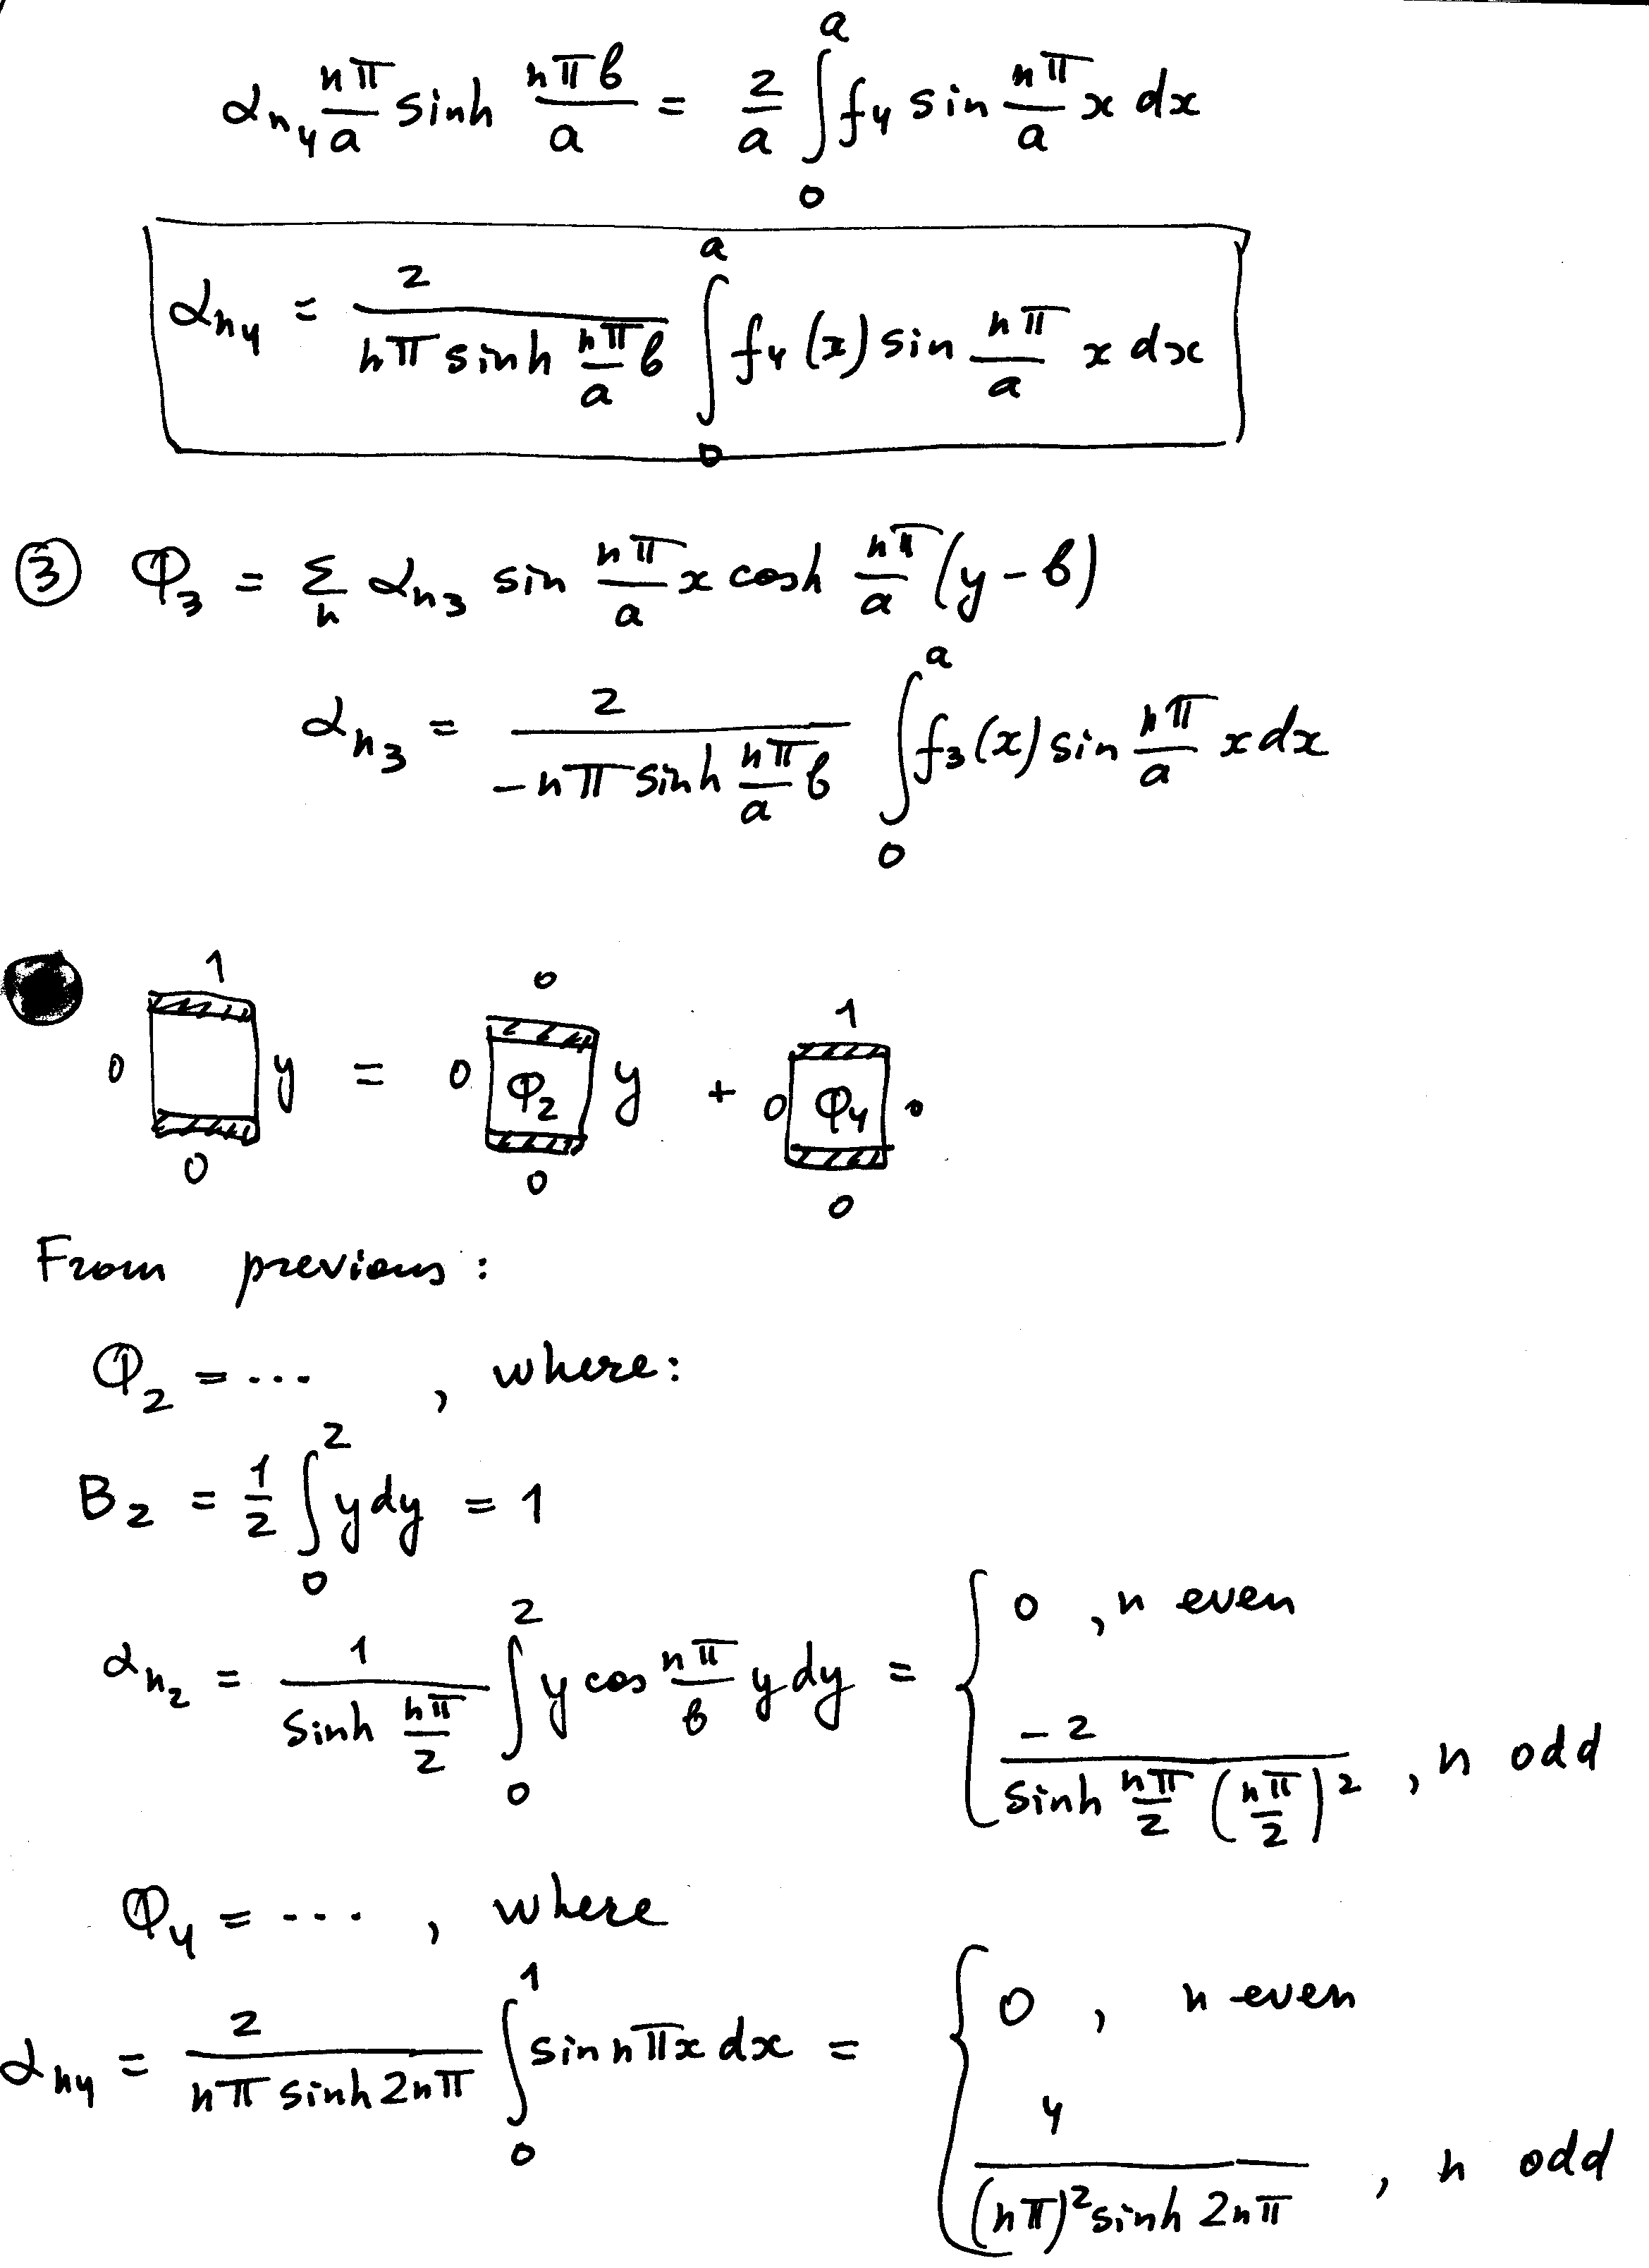 α_{n4} \frac{nπ}{a} sinh \frac{nπb}{a} = \frac{2}{a} ∫_0^a f_4 sin \frac{nπ}{a} x dx
α_{n4} = \frac{2}{nπ sinh \frac{nπ}{a} b} ∫_0^a f_4(x) sin \frac{nπ}{a} x dx
③ φ_3 = Σ_n α_{n3} sin \frac{nπ}{a} x cosh \frac{nπ}{a} (y - b)
α_{n3} = \frac{2}{-nπ sinh \frac{nπ}{a} b} ∫_0^a f_3(x) sin \frac{nπ}{a} x dx
1 0 1
0 y = 0 φ_2 y + 0 φ_4 0
0 0 0
From previous:
φ_2 = ... , where:
B_2 = \frac{1}{2} ∫_0^2 y dy = 1
α_{n2} = \frac{1}{sinh \frac{nπ}{2}} ∫_0^2 y cos \frac{nπ}{b} y dy = { 0 , n even
\frac{-2}{sinh \frac{nπ}{2} (\frac{nπ}{2})^2} , n odd
φ_4 = ... , where
α_{n4} = \frac{2}{nπ sinh 2nπ} ∫_0^1 sin nπx dx = { 0 , n even
\frac{4}{(nπ)^2 sinh 2nπ} , n odd